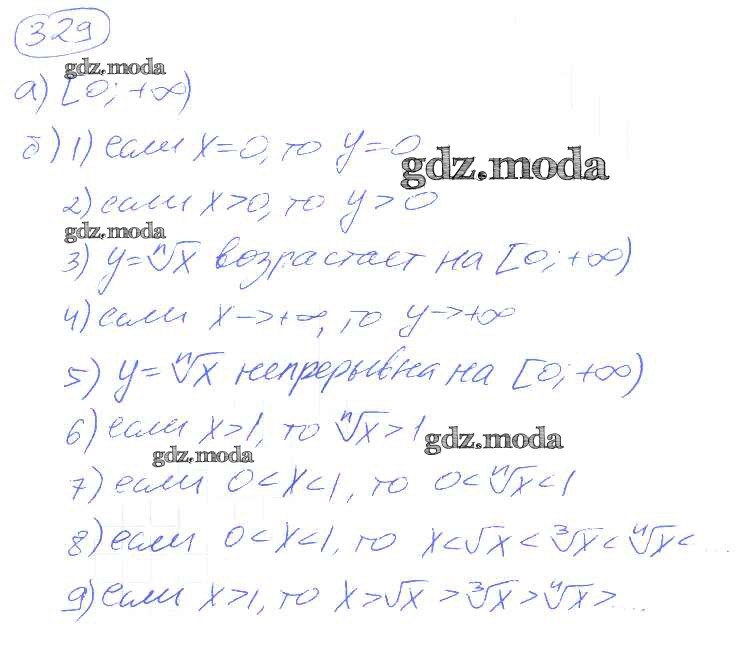 329
gdz.moda
а) [0; +∞)
б) 1) если x=0, то y=0
gdz.moda
2) если x>0, то y>0
gdz.moda
3) y=ⁿ√x возрастает на [0; +∞)
4) если x→+∞, то y→+∞
5) y=ⁿ√x непрерывна на [0; +∞)
6) если x>1, то ⁿ√x>1
gdz.moda
gdz.moda
7) если 0<x<1, то 0<ⁿ√x<1
8) если 0<x<1, то x<√x<³√x<⁴√x<...
9) если x>1, то x>√x>³√x>⁴√x>...